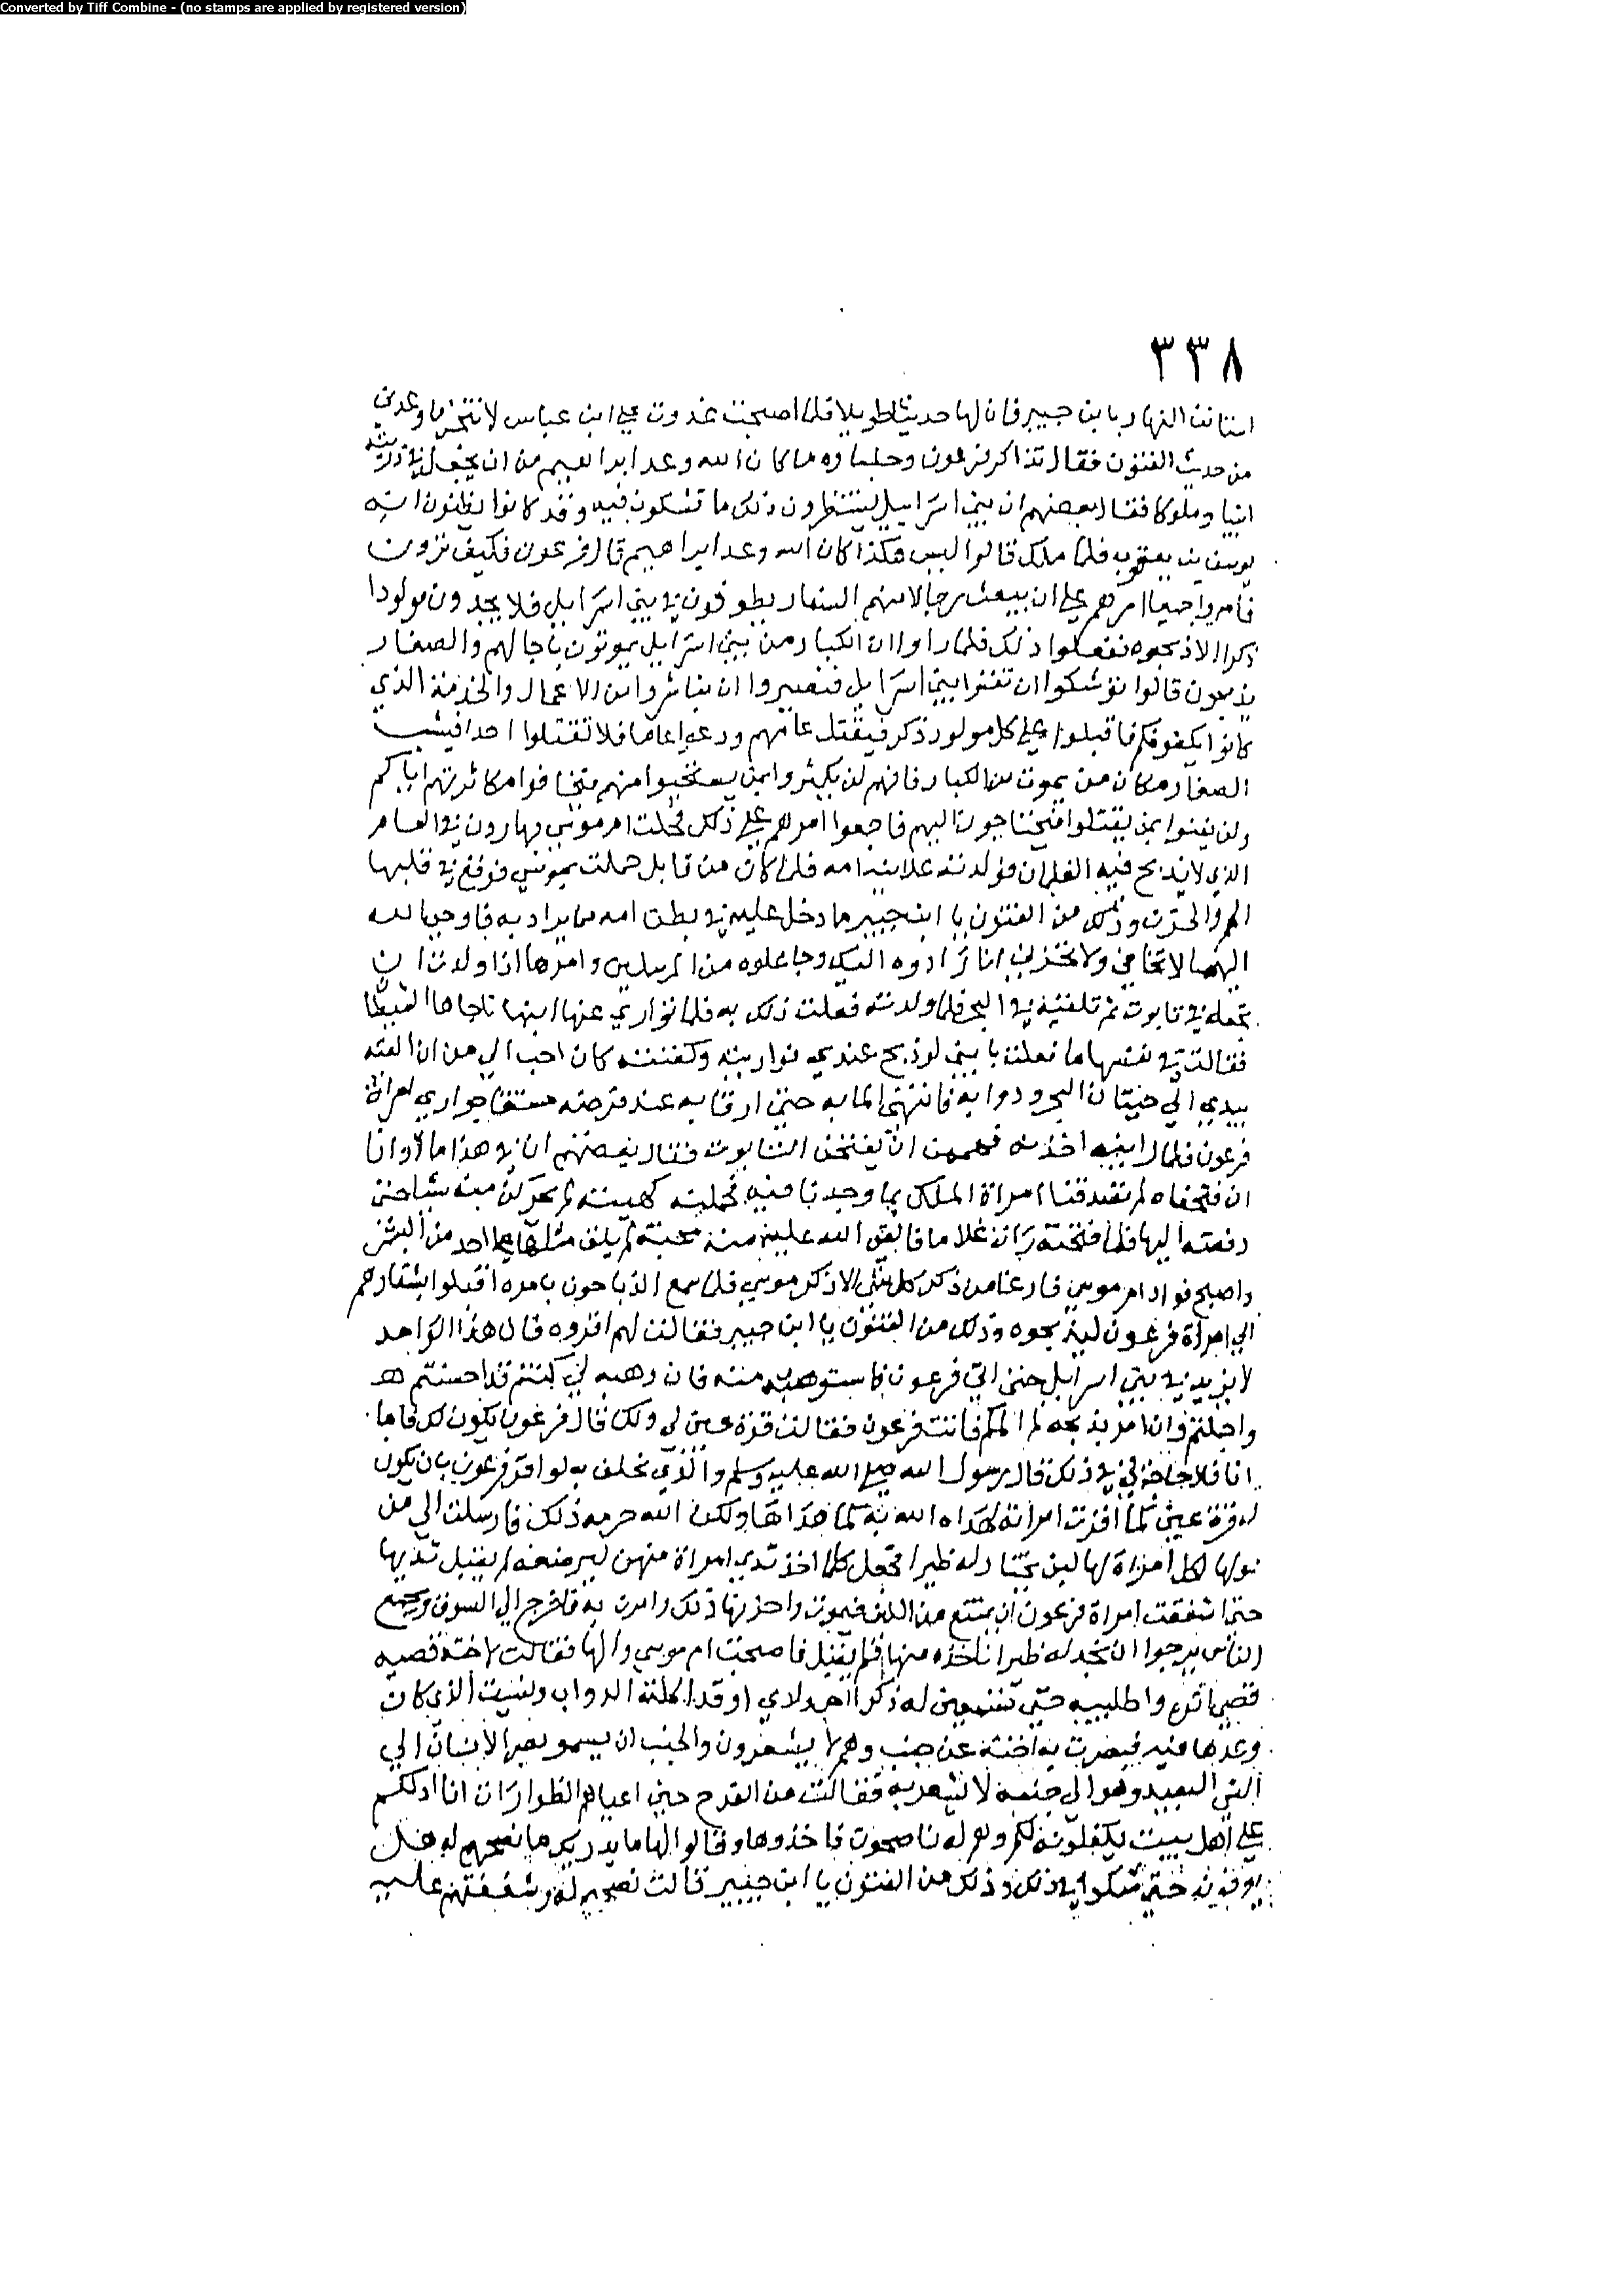 Converted by Tiff Combine - (no stamps are applied by registered version)
٣٣٨
استانف النهار يا ابن جبير فان لها حديثا طويلا فلما اصبحت غدوت على ابن عباس لانتجز ما وعدني
من حديث الفتون فقال تذاكر فرعون وجلساوه ما كان الله وعد ابراهيم من ان يجعل في ذريته
انبيا وملوكا فقال بعضهم ان بني اسراييل لينتظرون ذلك ما تشكون فيه وقد كانوا يظنون انه
يوسف بن يعقوب فلما هلك قالوا ليس هكذا كان الله وعد ابراهيم قال فرعون فكيف ترون
فأمروا جمعوا امرهم على ان يبعث رجالا معهم الشفار يطوفون في بني اسراييل فلا يجدون مولودا
ذكرا الا ذبحوه ففعلوا ذلك فلما راوا ان الكبار من بني اسراييل يموتون باجالهم والصغار
يذبحون قالوا توشكوا ان تفنوا بني اسراييل فتصيروا ان تباشروا من الاعمال والخدمة الذي
كانوا يكفونكم فاقبلوا على كل مولود ذكر فيقتل عامهم ودعوا عاما فلا تقتلوا احدا فيشب
الصغار مكان من يموت من الكبار فانهم لن يكثروا بمن يستحيوا منهم فتخافوا مكاثرتهم اياكم
ولن يفنوا بمن يقتلوا فتحتاجون اليهم فاجمعوا امرهم على ذلك فحملت ام موسى بهارون في العام
الذي لا يذبح فيه الغلمان فولدته علانية امه فلما كان من قابل حملت بموسى فوقع في قلبها
الهم والحزن وذلك من الفتون يا ابن جبير ما دخل عليه في بطن امه مما يراد به فاوحى الله
اليها لا تخافي ولا تحزني انا رادوه اليك وجاعلوه من المرسلين وامرها اذا ولدت ان
تجعله في تابوت ثم تلقيه في اليم فلما ولدته فعلت ذلك به فلما توارى عنها ابنها
فقالت في نفسها ما فعلت بابني لو ذبح عندي فواريته وكفنته كان احب الي من ان القيه
بيدي الى حيتان البحر ودوابه فانتهى الما به حتى ارفا به عند فرضة مستقا جواري امراة
فرعون فلما راينه اخذنه فهممن ان يفتحن التابوت فقال بعضهم ان في هذا مالا وانا
ان فتحناه لم تصدقنا امراة الملك بما وجدنا فيه فحملنه كهيئته لم يحركن منه شيا حتى
دفعنه اليها فلما فتحته رات غلاما فالقى الله عليه منه محبة لم يلق مثلها على احد من البشر
واصبح فواد ام موسى فارغا من ذكر كل شي الا ذكر موسى فلما سمع الذباحون بامره اقبلوا بشفارهم
الى امراة فرعون ليذبحوه وذلك من الفتون يا ابن جبير فقالت لهم اقروه فان هذا الواحد
لا يزيد في بني اسراييل حتى اتي فرعون فاستوهبه منه فان وهبه لي كنتم قد احسنتم
واجملتم وان امر بذبحه لم المكم فاتت فرعون فقالت قرة عين لي ولك فقال فرعون يكون لك فاما
انا فلا حاجة لي في ذلك قال رسول الله صلى الله عليه وسلم والذي يحلف به لو اقر فرعون بان يكون
له قرة عين كما اقرت امراته لهداه الله به كما هداها ولكن الله حرمه ذلك فارسلت الى من
حولها لكل امراة لها لبن تختار له ظيرا فجعل كلما اخذ ثدي امراة منهن ليرضعه لم يقبل ثديها
حتى اشفقت امراة فرعون ان يمتنع من اللبن فيموت واحزنها ذلك وامرت به فاخرج الى السوق ومجمع
الناس ترجوا ان تجد له ظيرا تاخذه منها فلم يقبل فاصبحت ام موسى والها فقالت لاخته قصيه
قصي اثره واطلبيه حتى تسمعين له ذكرا احي ولدي او قد اكلته الدواب ونسيت الذي كان
وعدها فيه فبصرت به اخته عن جنب وهم لا يشعرون والجنب ان يسمو بصر الانسان الى
الشي البعيد وهو الى جنبه لا يشعر به فقالت من الفرح حين اعياهم الظوارات انا ادلكم
على اهل بيت يكفلونه لكم وهم له ناصحون فاخذوها وقالوا لها ما يدريك ما نصحهم له هل
يعرفونه حتى شكوا في ذلك وذلك من الفتون يا ابن جبير قالت نصحهم له وشفقتهم عليه